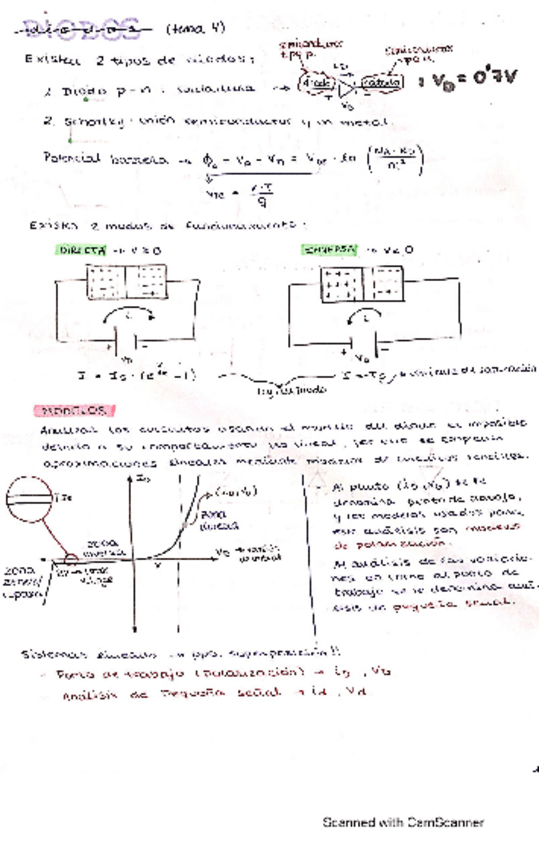 DIODOS (tema 4)
Existen 2 tipos de diodos:
semiconductor tipo p.
semiconductor
ánodo cátodo : V_D = 0'7V
I_D
V_D
1. Diodo p-n:
2. Schottky: unión semiconductor y un metal.
Potencial barrera → ϕ_0 = V_p - V_n = V_te · ln (N_A · N_D / n_i²)
V_te = k·T / q
Existen 2 modos de funcionamiento:
DIRECTA → V ≥ 0 INVERSA → V < 0
i i
+ - - +
V_D V_D
I = I_S · (e - 1) I = -I_S → de saturación
MODELOS
Analizar los circuitos usando el modelo del diodo es imposible
debido a su comportamiento no lineal, por eso se emplean
aproximaciones lineales mediante modelos de circuitos sencillos.
I_S I_D
(I_D, V_D)
zona directa
zona inversa
V_D → tensión
zona zener/ruptura
Al punto (i_D, V_D) se le
denomina punto de trabajo,
y los modelos usados para
este análisis son modelos
de polarización.
Al análisis de las variacio-
nes en torno al punto de
trabajo se le denomina aná-
lisis en pequeña señal.
Sistemas lineales → ppo. superposición!!
- Punto de trabajo (Polarización) → i_D, V_D
- Análisis de Pequeña señal → i_d, V_d
Scanned with CamScanner